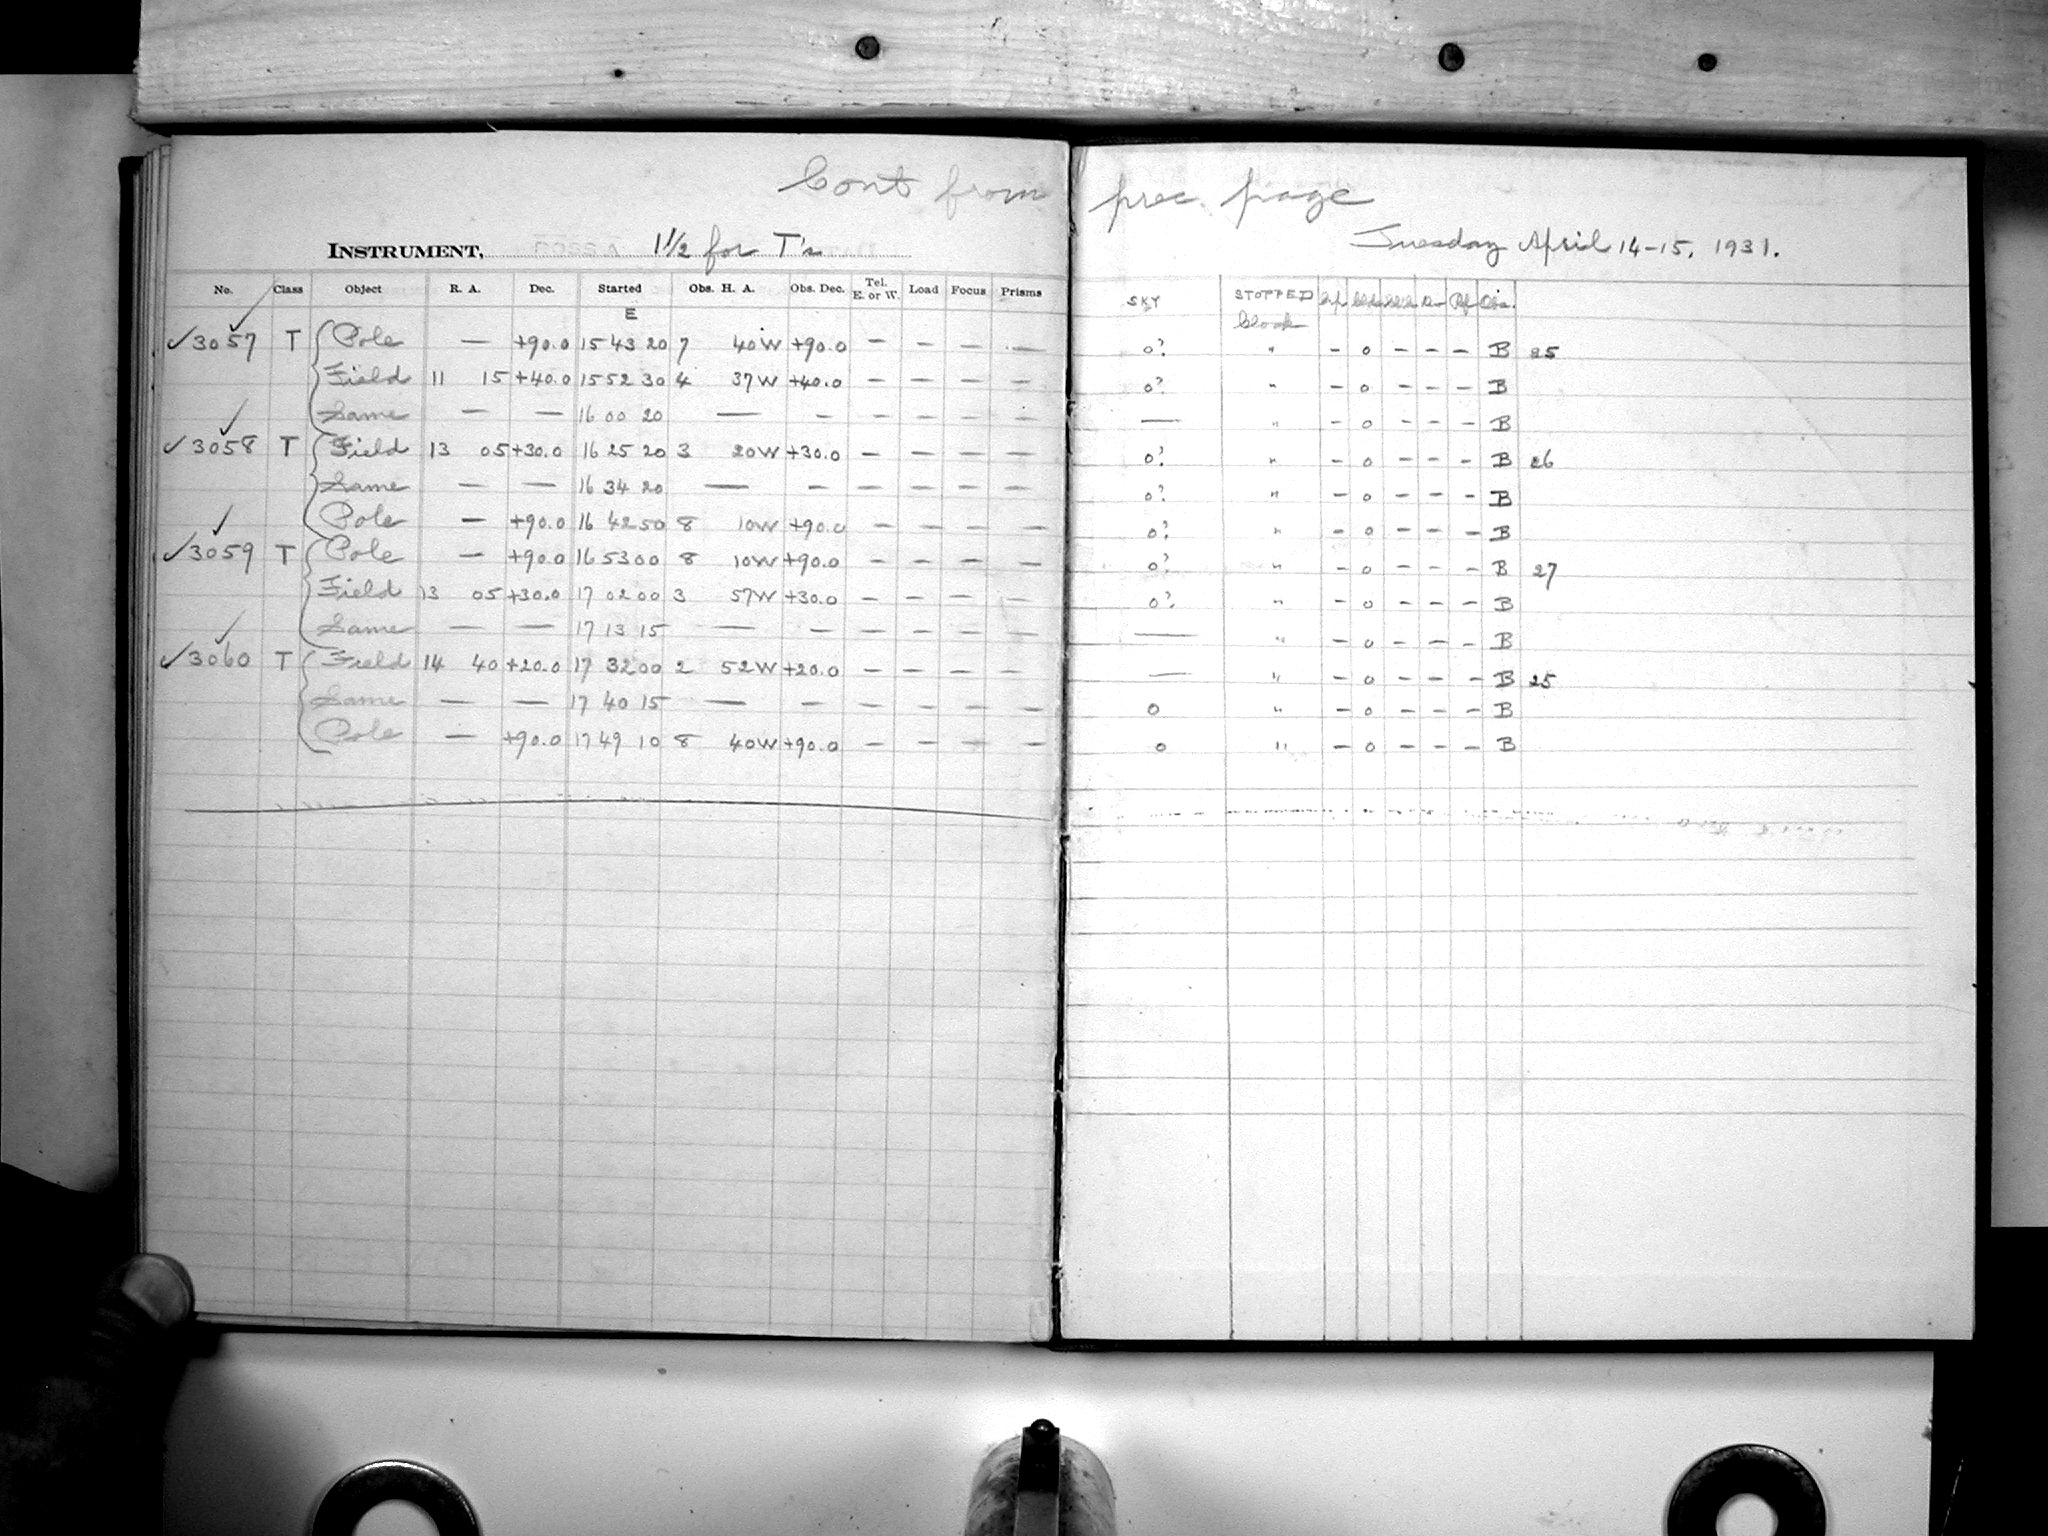 Cont from prec. page
INSTRUMENT, 1 1/2 for T's
Tuesday April 14-15, 1931.
No. Class Object R. A. Dec. Started Obs. H. A. Obs. Dec. Tel. E. or W. Load Focus Prisms SKY STOPPED Clock Obs.
E
✓3057 T Pole — +90.0 15 43 20 7 40W +90.0 — — — — 0? " - 0 - - - B 25
Field 11 15 +40.0 15 52 30 4 37W +40.0 — — — — 0? " - 0 - - - B
Same — — 16 00 20 — — — — — — — " - 0 - - - B
✓3058 T Field 13 05 +30.0 16 25 20 3 20W +30.0 — — — — 0? " - 0 - - - B 26
Same — — 16 34 20 — — — — — — 0? " - 0 - - - B
Pole — +90.0 16 42 50 8 10W +90.0 — — — — 0? " - 0 - - - B
✓3059 T Pole — +90.0 16 53 00 8 10W +90.0 — — — — 0? " - 0 - - - B 27
Field 13 05 +30.0 17 02 00 3 57W +30.0 — — — — 0? " - 0 - - - B
Same — — 17 13 15 — — — — — — — " - 0 - - - B
✓3060 T Field 14 40 +20.0 17 32 00 2 52W +20.0 — — — — — " - 0 - - - B 25
Same — — 17 40 15 — — — — — — 0 " - 0 - - - B
Pole — +90.0 17 49 10 8 40W +90.0 — — — — 0 " - 0 - - - B